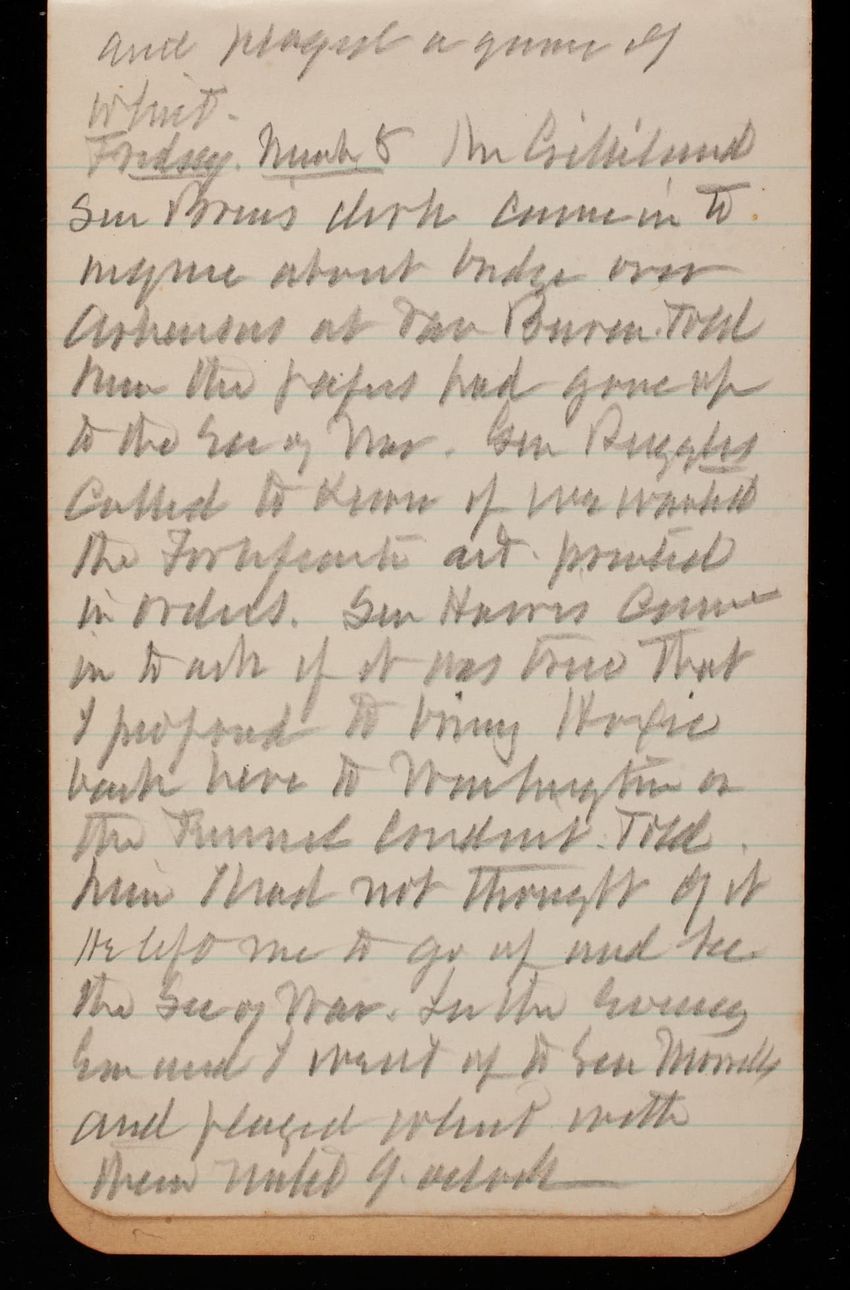 and played a game of
whist.
Friday. March 5 Mr
Sen Brice's clerk came in to
inquire about bridge over
Arkansas at Van Buren. Told
him the papers had gone up
to the Sec of War. Gen Ruggles
Called to know if we wanted
the art. printed
in orders. Sen Harris Came
in to ask if it was true that
I proposed to bring Hoxie
back here to Washington on
the Tunnel Conduit. Told
him I had not thought of it
He left me to go up and see
the Sec of War. In the Evening
Em and I went up to Sen Morrills
and played whist with
them until 9. oclock